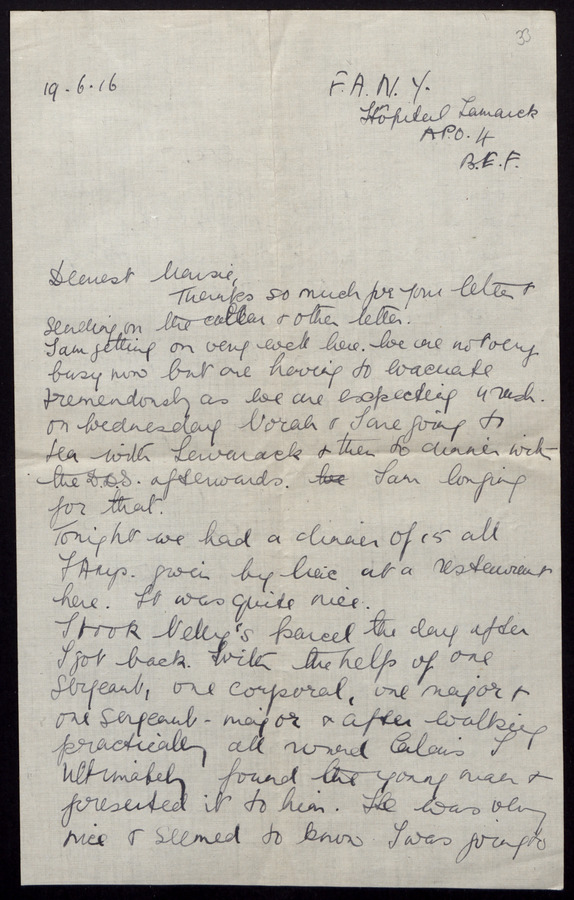 33
19-6-16
F.A.N.Y.
Hôpital Lamarck
A.P.O. 4
B.E.F.
Dearest
Thanks so much for your letter &
sending on the & other letter.
I am getting on very well here. We are not very
busy now but are having to evacuate
tremendously as we are expecting a rush.
On Wednesday Norah & I are going to
tea with & then to dinner with
the afterwards. I am longing
for that.
Tonight we had a dinner of 15 all
FAnys. given by at a restaurant
here. It was quite nice.
I took parcel the day after
I got back. With the help of one
Sergeant, one corporal, one major &
one Sergeant-major & after walking
practically all round Calais I
ultimately found the young man &
presented it to him. He was very
nice & seemed to know I was going to